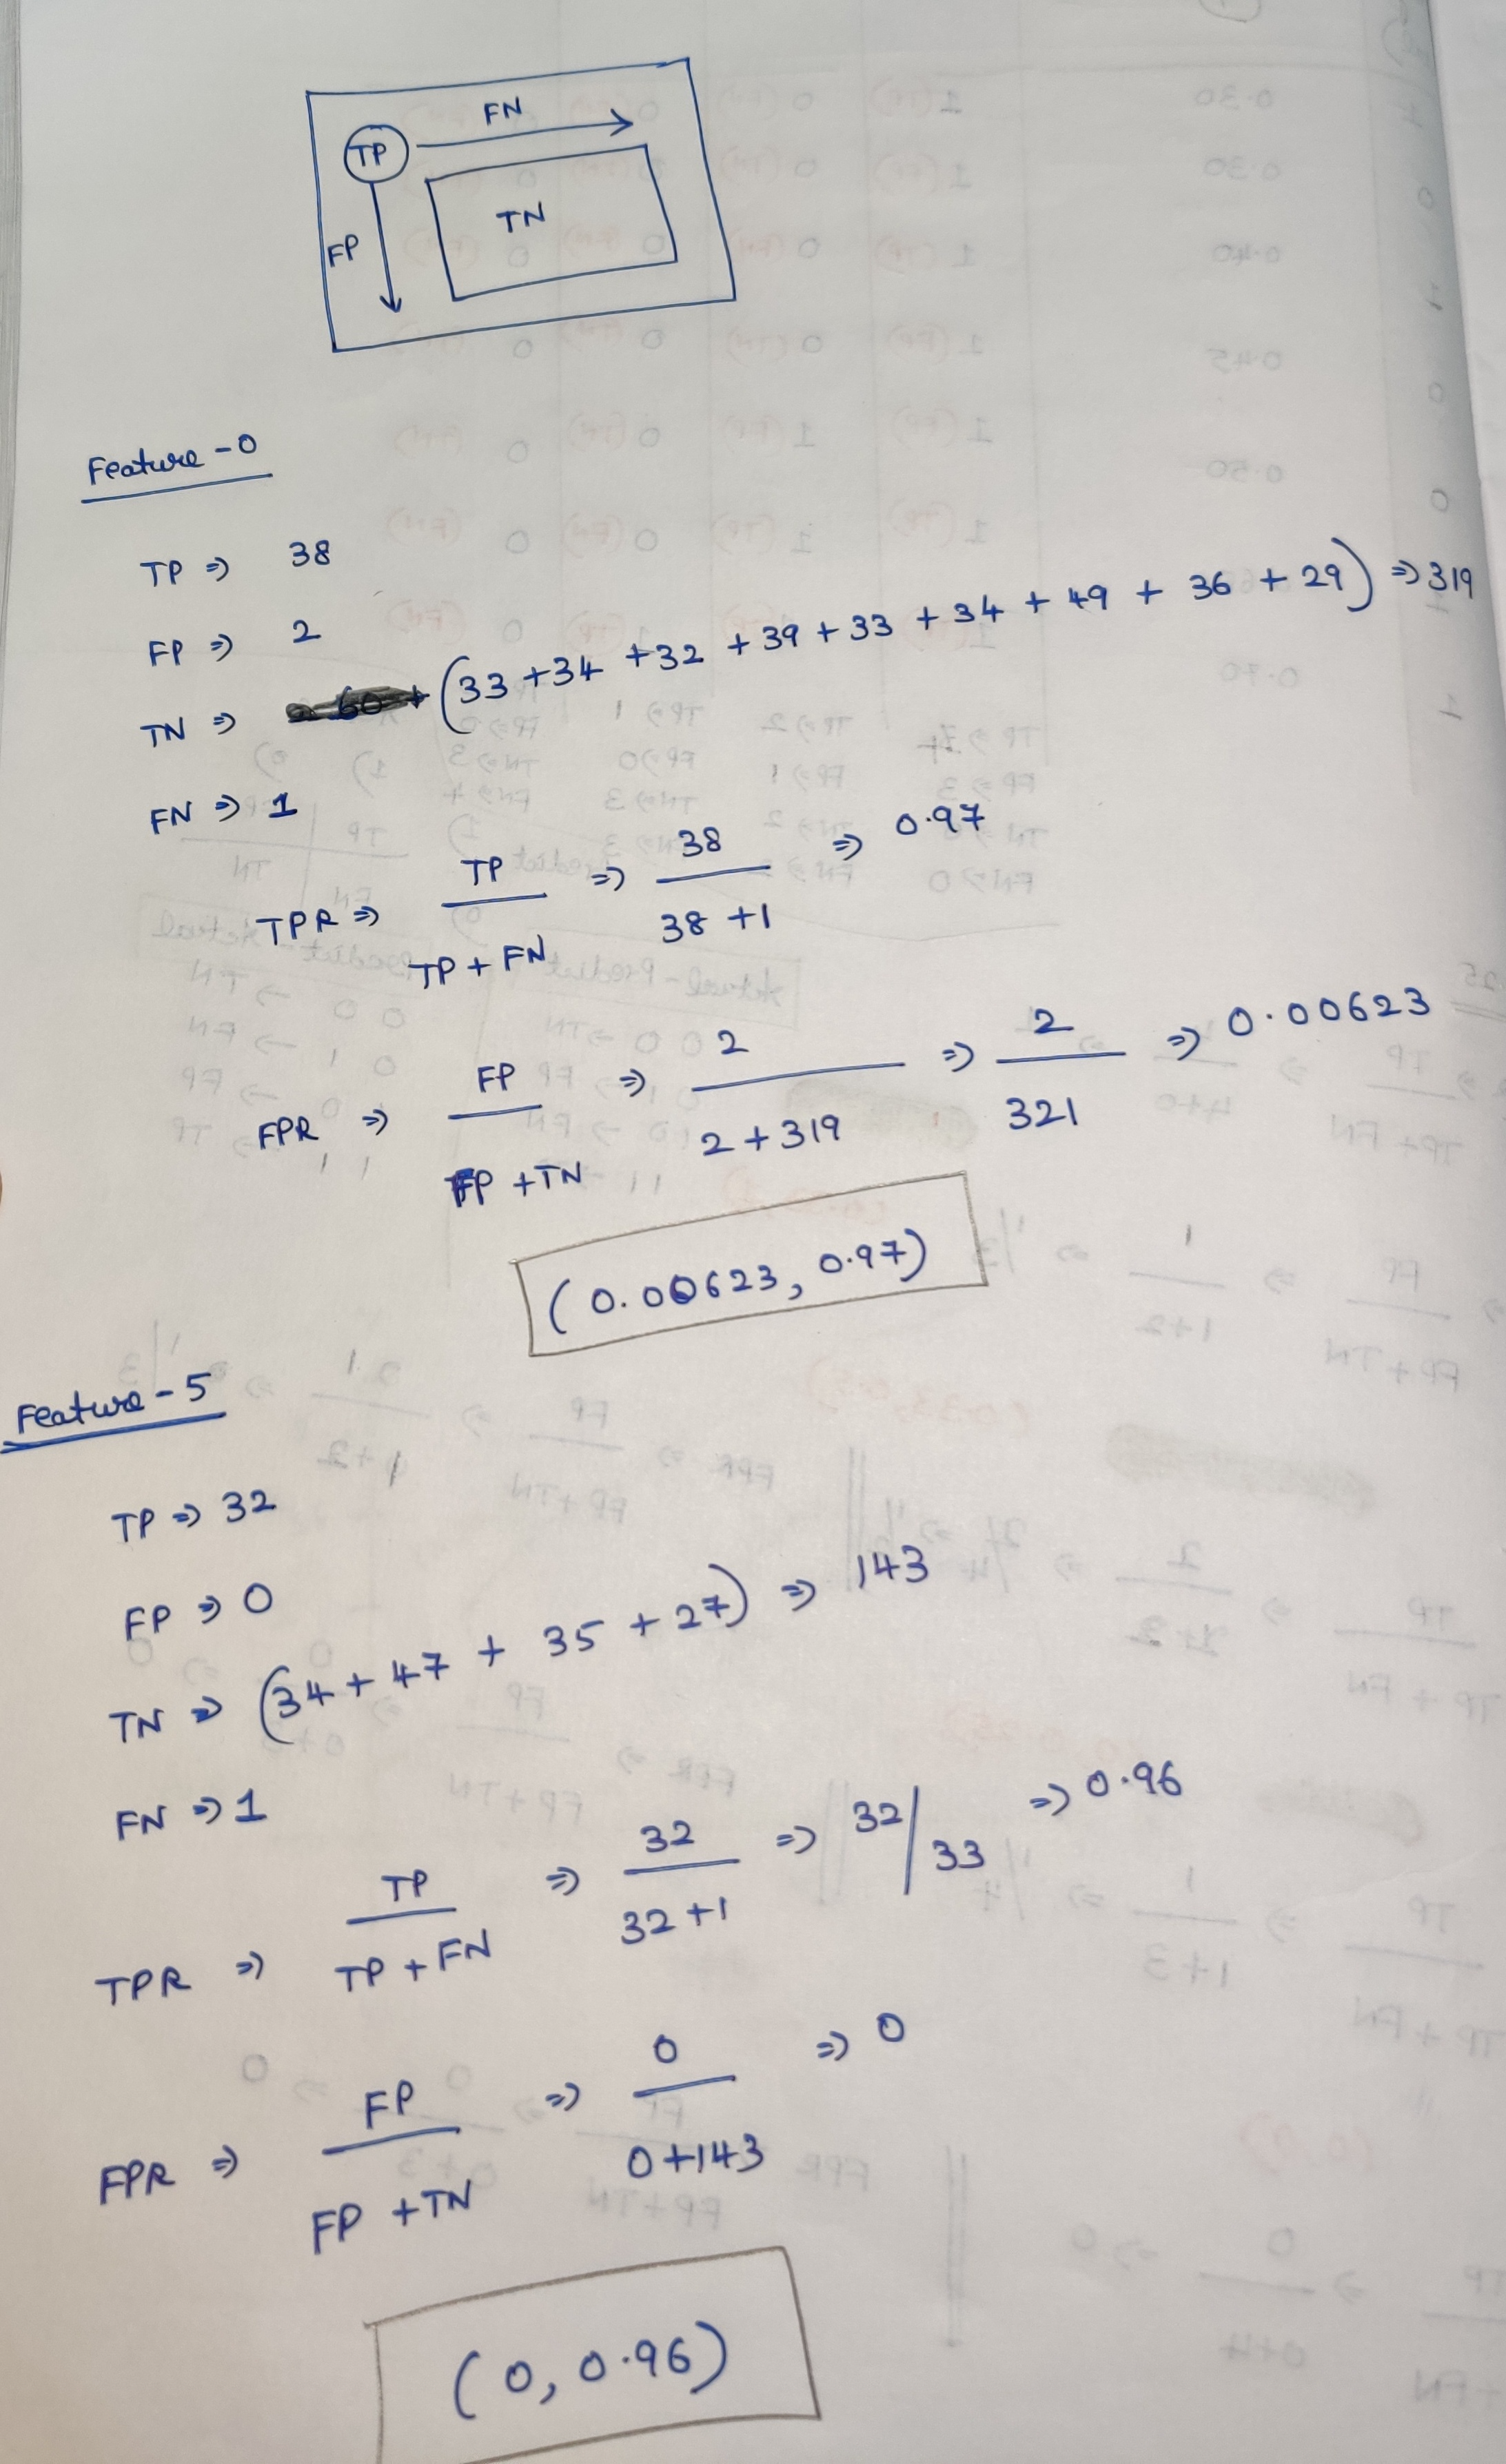 FN
TP
TN
FP
Feature - 0
TP ⇒ 38
FP ⇒ 2
TN ⇒ (33 + 34 + 32 + 39 + 33 + 34 + 49 + 36 + 29) ⇒ 319
FN ⇒ 1
TPR ⇒ TP / TP + FN ⇒ 38 / 38 + 1 ⇒ 0.97
FPR ⇒ FP / FP + TN ⇒ 2 / 2 + 319 ⇒ 2 / 321 ⇒ 0.00623
(0.00623, 0.97)
Feature - 5
TP ⇒ 32
FP ⇒ 0
TN ⇒ (34 + 47 + 35 + 27) ⇒ 143
FN ⇒ 1
TPR ⇒ TP / TP + FN ⇒ 32 / 32 + 1 ⇒ 32/33 ⇒ 0.96
FPR ⇒ FP / FP + TN ⇒ 0 / 0 + 143 ⇒ 0
(0, 0.96)